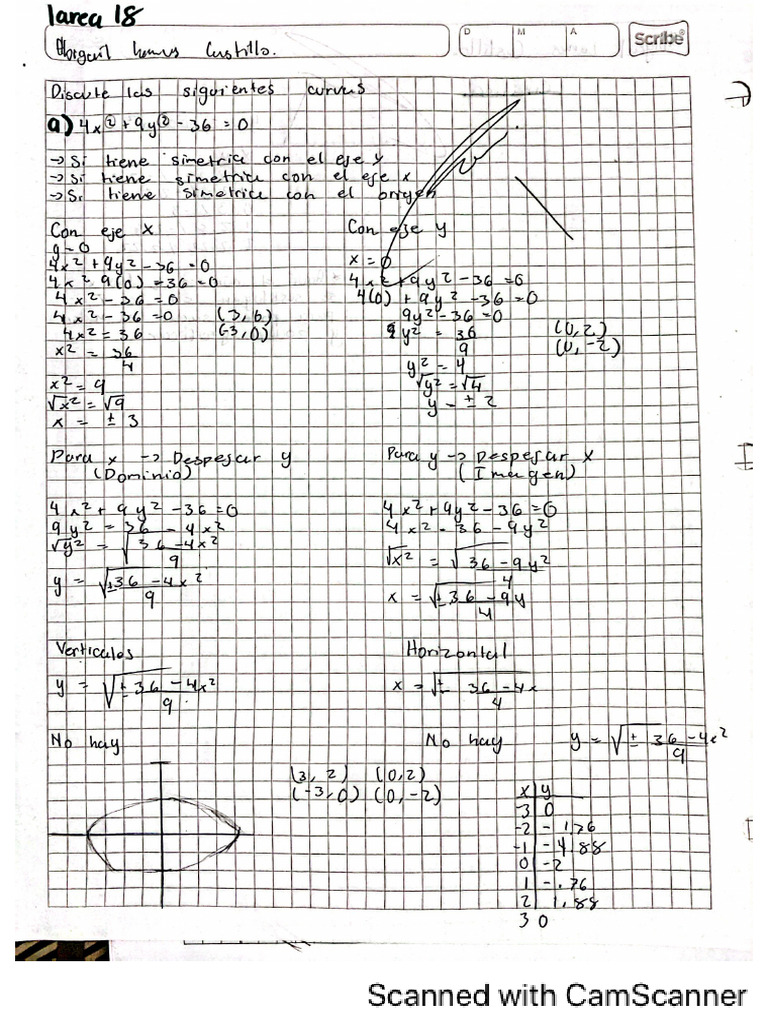 Tarea 18
D M A
Scribe
Discute las siguientes curvas
a) 4x² + 9y² - 36 = 0
→ Si tiene simetria con el eje y
→ Si tiene simetria con el eje x
→ Si tiene simetria con el origen
Con eje x
y = 0
4x² + 9y² - 36 = 0
4x² 9(0) - 36 = 0
4x² - 36 = 0
4x² - 36 = 0 (3, 0)
4x² = 36 (-3, 0)
x² = 36/4
x² = 9
√x² = √9
x = ± 3
Con eje y
x = 0
4x² + 9y² - 36 = 0
4(0) + 9y² - 36 = 0
9y² - 36 = 0
9y² = 36/9 (0, 2)
(0, -2)
y² = 4
√y² = √4
y = ± 2
Para x → Despejar y
(Dominio)
4x² + 9y² - 36 = 0
9y² = 36 - 4x²
√y² = √36 - 4x²/9
y = √±36 - 4x²/9
Para y → Despejar x
(Imagen)
4x² + 9y² - 36 = 0
4x² - 36 - 9y²
√x² = √36 - 9y²/4
x = √±36 - 9y/4
Verticales
y = √± 36 - 4x²/9
No hay
Horizontal
x = √± 36 - 4x/4
No hay y = √± 36 - 4x²/9
(3, 2) (0, 2)
(-3, 0) (0, -2)
x y
-3 0
-2 - 1.76
-1 - 4.88
0 -2
1 - .76
2 1.88
3 0
Scanned with CamScanner